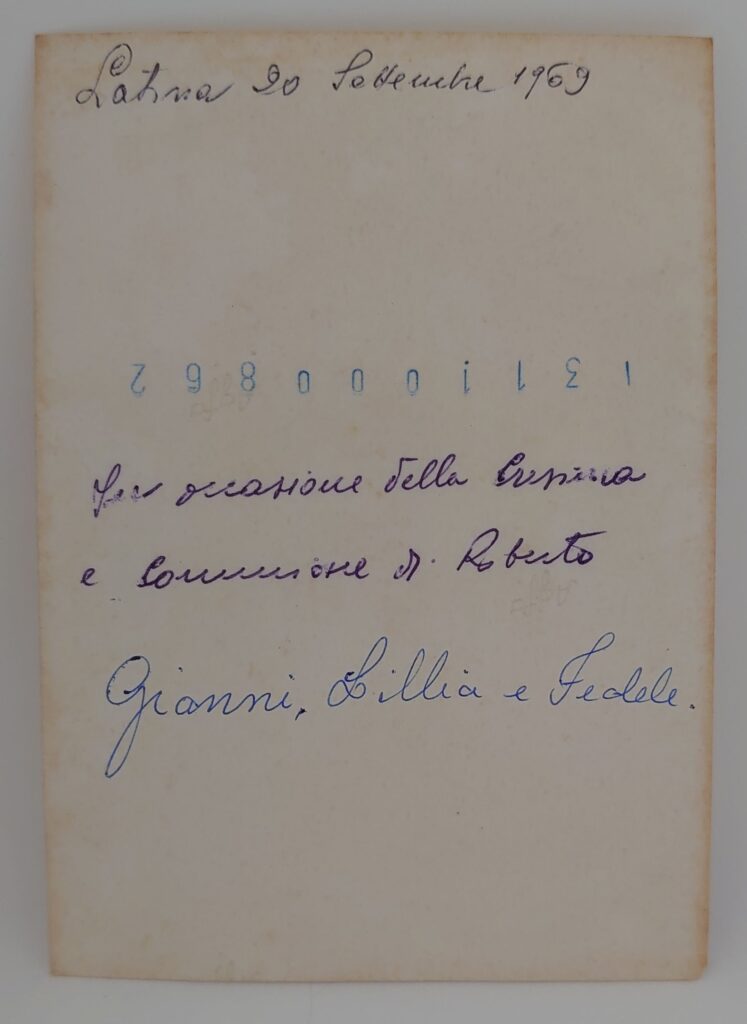 Latina 20 Settembre 1969
1311000862
Per occasione della Cresima
e Comunione di Roberto
Gianni, Lillia e Fedele.